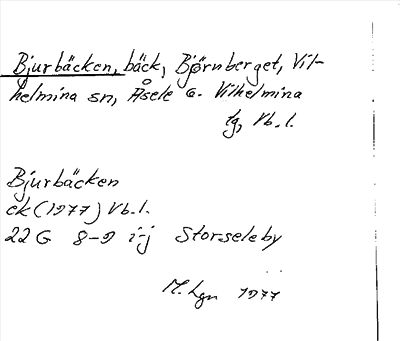 Bjurbäcken, bäck, Bjørnberget, Vil-
helmina sn, Åsele o. Vilhelmina
tg, Vb.l.
Bjurbäcken
ek (1977) Vb.l.
22 G 8-9 i-j Storseleby
M. Lgn 1977